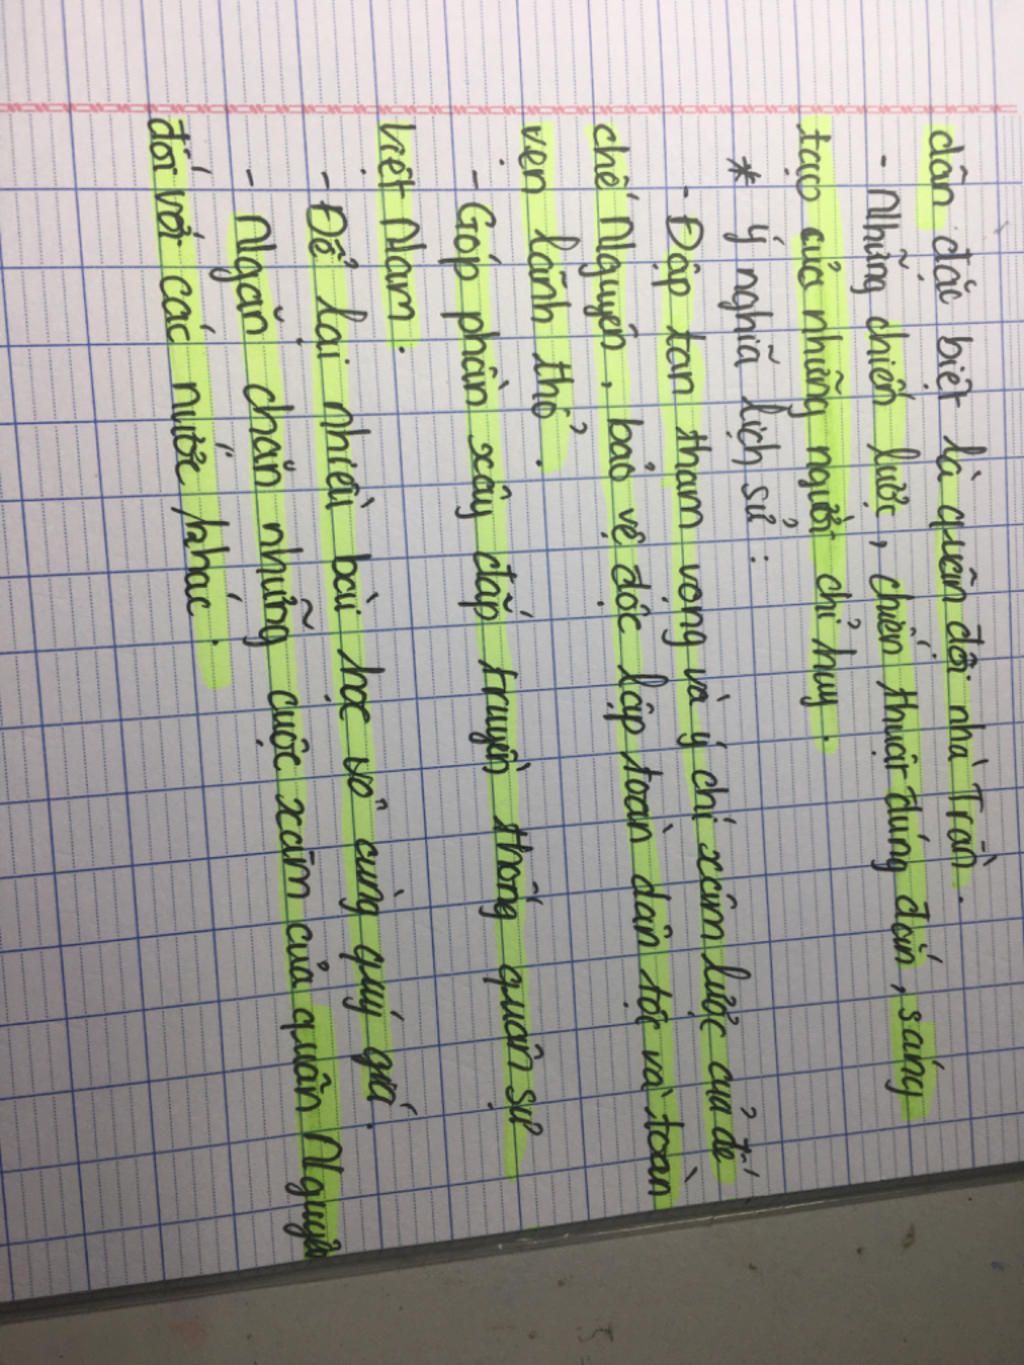 dân đặc biệt là quân đội nhà Trần.
- Những chiến lược, chiến thuật đúng đắn, sáng
tạo của những người chỉ huy.
* Ý nghĩa lịch sử :
- Đập tan tham vọng và ý chí xâm lược của đế
chế Nguyên, bảo vệ độc lập toàn dân tộc và toàn
vẹn lãnh thổ.
- Góp phần xây đắp truyền thống quân sự
Việt Nam.
- Để lại nhiều bài học vô cùng quý giá.
- Ngăn chặn những cuộc xâm của quân Nguyên
đối với các nước khác.